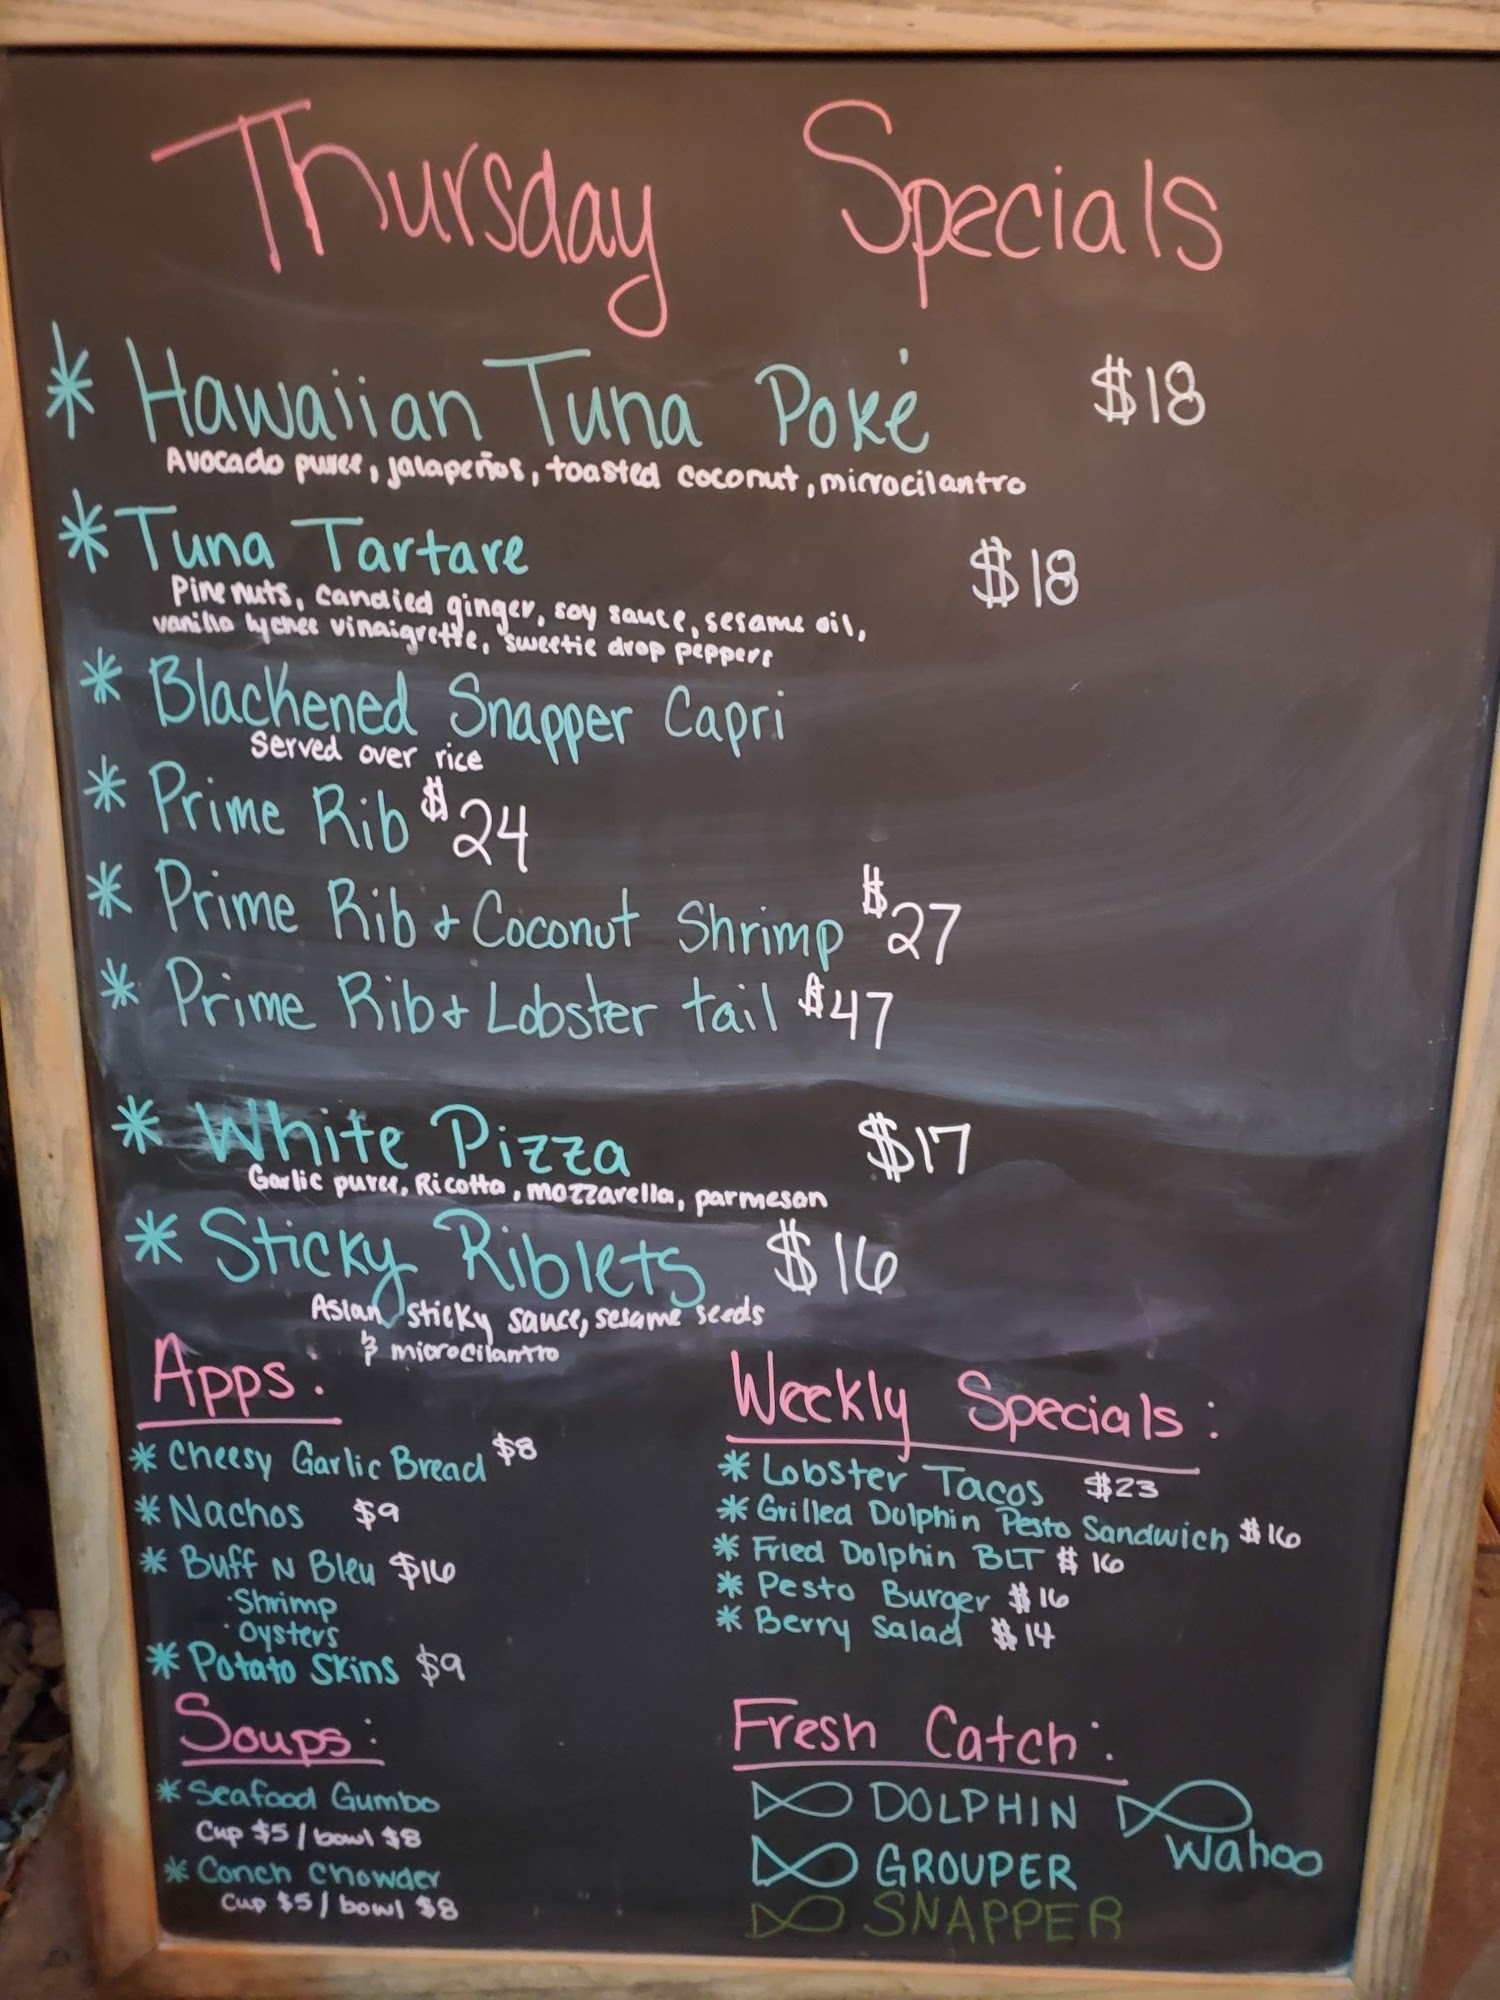 Thursday Specials
* Hawaiian Tuna Poké $18
Avocado puree, jalapeños, toasted coconut, microcilantro
* Tuna Tartare $18
Pine nuts, candied ginger, soy sauce, sesame oil,
vanilla lychee vinaigrette, sweetie drop peppers
* Blackened Snapper Capri
Served over rice
* Prime Rib $24
* Prime Rib + Coconut Shrimp $27
* Prime Rib + Lobster tail $47
* White Pizza $17
Garlic puree, Ricotta, mozzarella, parmesan
* Sticky Riblets $16
Asian sticky sauce, sesame seeds
& microcilantro
Apps:
* Cheesy Garlic Bread $8
* Nachos $9
* Buff N Bleu $16
· Shrimp
· Oysters
* Potato Skins $9
Soups:
* Seafood Gumbo
Cup $5 / bowl $8
* Conch Chowder
Cup $5 / bowl $8
Weekly Specials:
* Lobster Tacos $23
* Grilled Dolphin Pesto Sandwich $16
* Fried Dolphin BLT $16
* Pesto Burger $16
* Berry Salad $14
Fresh Catch:
DOLPHIN
Wahoo
GROUPER
SNAPPER